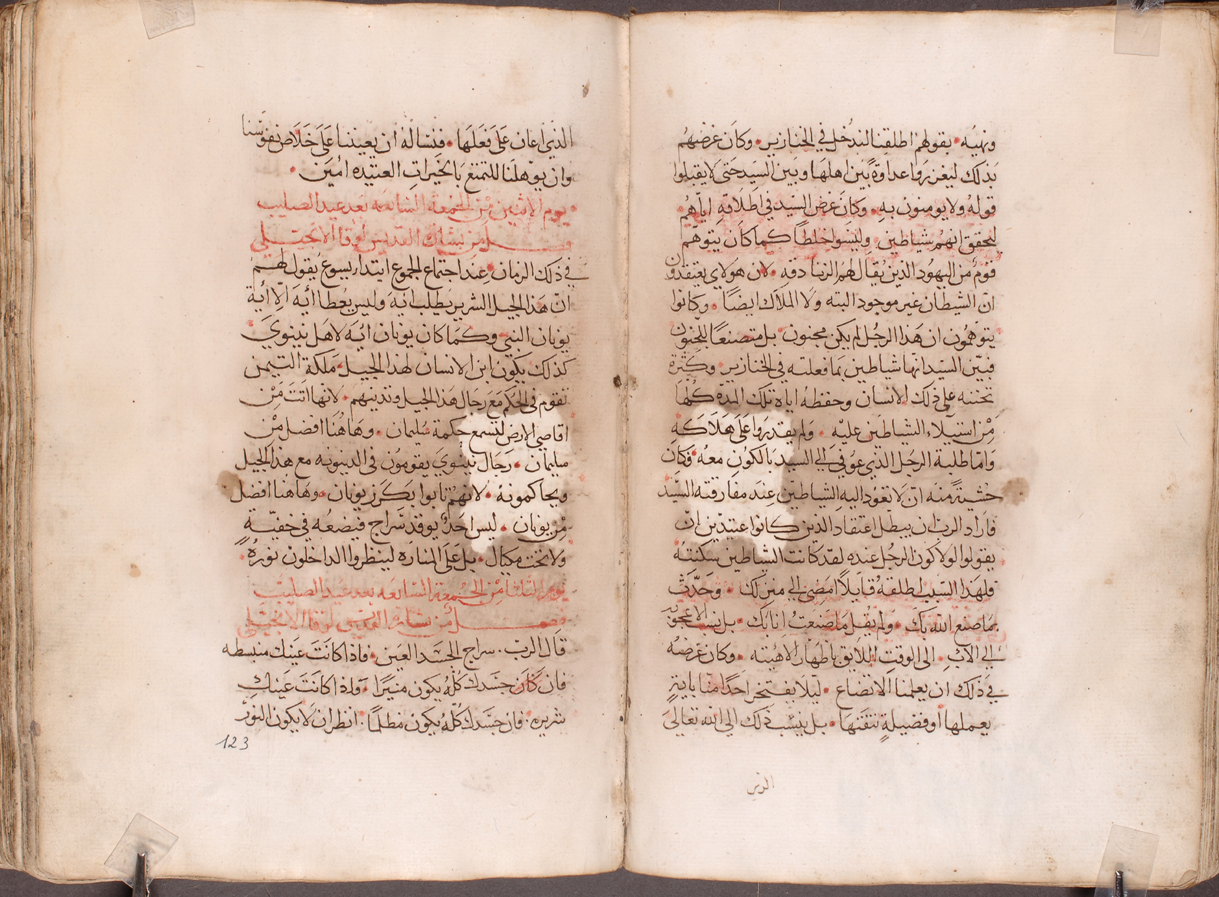 ونهبه • بقولهم اطلقنا لندخل في الخنازير • وكان غرضهم
بذلك ليغزروا عداوةً بين اهلها وبين السيد حتى لا يقبلوا
قوله ولا يومنون به • وكان غرض السيد في اطلاقهِ اياهم
لتحقق انهم شياطين • وليسوا خلطاً كما كان يتوهم
قومٌ من اليهود الذين يقال لهم الزنادقه • لان هولاي يعتقدون
ان الشيطان غير موجود البته ولا الملاك ايضاً • وكانوا
يتوهمون ان هذا الرجل لم يكن مجنون • بل متصنعاً للجنون
فبين السيد انها شياطين بما فعلته في الخنازير • وكثرة
تحننه على ذلك الانسان وحفظه اياه تلك المده كلها
من استيلاء الشياطين عليه • ولم يقدروا على هلاكه
واما طلبة الرجل الذي عوفي الى السيد بالكون معه • فكان
خشيةً منه ان لا تعود اليه الشياطين عند مفارقته السيد
فاراد الرب ان يبطل اعتقاد الذين كانوا عتيدين ان
يقولوا لولا كون الرجل عنده لقد كانت الشياطين سكنته
فلهذا السبب اطلقهُ قايلاً امضي الى منزلك • وحدث
بما صنع الله بك • ولم يقل ما صنعت انا بك • بل نسب الاعجوبه
الى الاب • الى الوقت اللايق باظهار لاهيته • وكان غرضه
في ذلك ان يعلمنا الاتضاع • ليلا يفتخر احداً منا باية
يعملها او فضيلةٍ يتقنها • بل ينسب ذلك الى الله تعالى
الذي
الذي اعان على فعلها • فنساله ان يعيننا على خلاص نفوسنا
وان يوهلنا للتمتع بالخيرات العتيده امين •
يوم الاثنين من الجمعه السابعه بعد عيد الصليب
فصل من بشارة القديس لوقا الانجيلي
في ذلك الزمان • عند اجتماع الجموع ابتدا يسوع يقول لهم
ان هذا الجيل الشرير يطلب ايه وليس يعطا ايه الا اية
يونان النبي • وكما كان يونان ايه لاهل نينوي
كذلك يكون ابن الانسان لهذا الجيل • ملكة التيمن
تقوم في الحكم مع رجال هذا الجيل وتدينهم • لانها اتت من
اقاصي الارض لتسمع حكمة سليمان • وهاهنا افضل من
سليمان • رجال نينوي يقومون في الدينونه مع هذا الجيل
ويحاكمونه • لانهم تابوا بكرز يونان • وهاهنا افضل
من يونان • ليس احدٌ يوقد سراج فيضعه في خفيةٍ
ولا تحت مكيال • بل على المناره لينظروا الداخلون نوره
يوم الثلثا من الجمعه السابعه بعد عيد الصليب
فصل من بشارة القديس لوقا الانجيلي
قال الرب • سراج الجسد العين • فاذا كانت عينك منبسطه
فان كان جسدك كله يكون منيراً • واذا كانت عينك
شريره • فان جسدك كله يكون مظلماً • انظر ان لا يكون النور
123